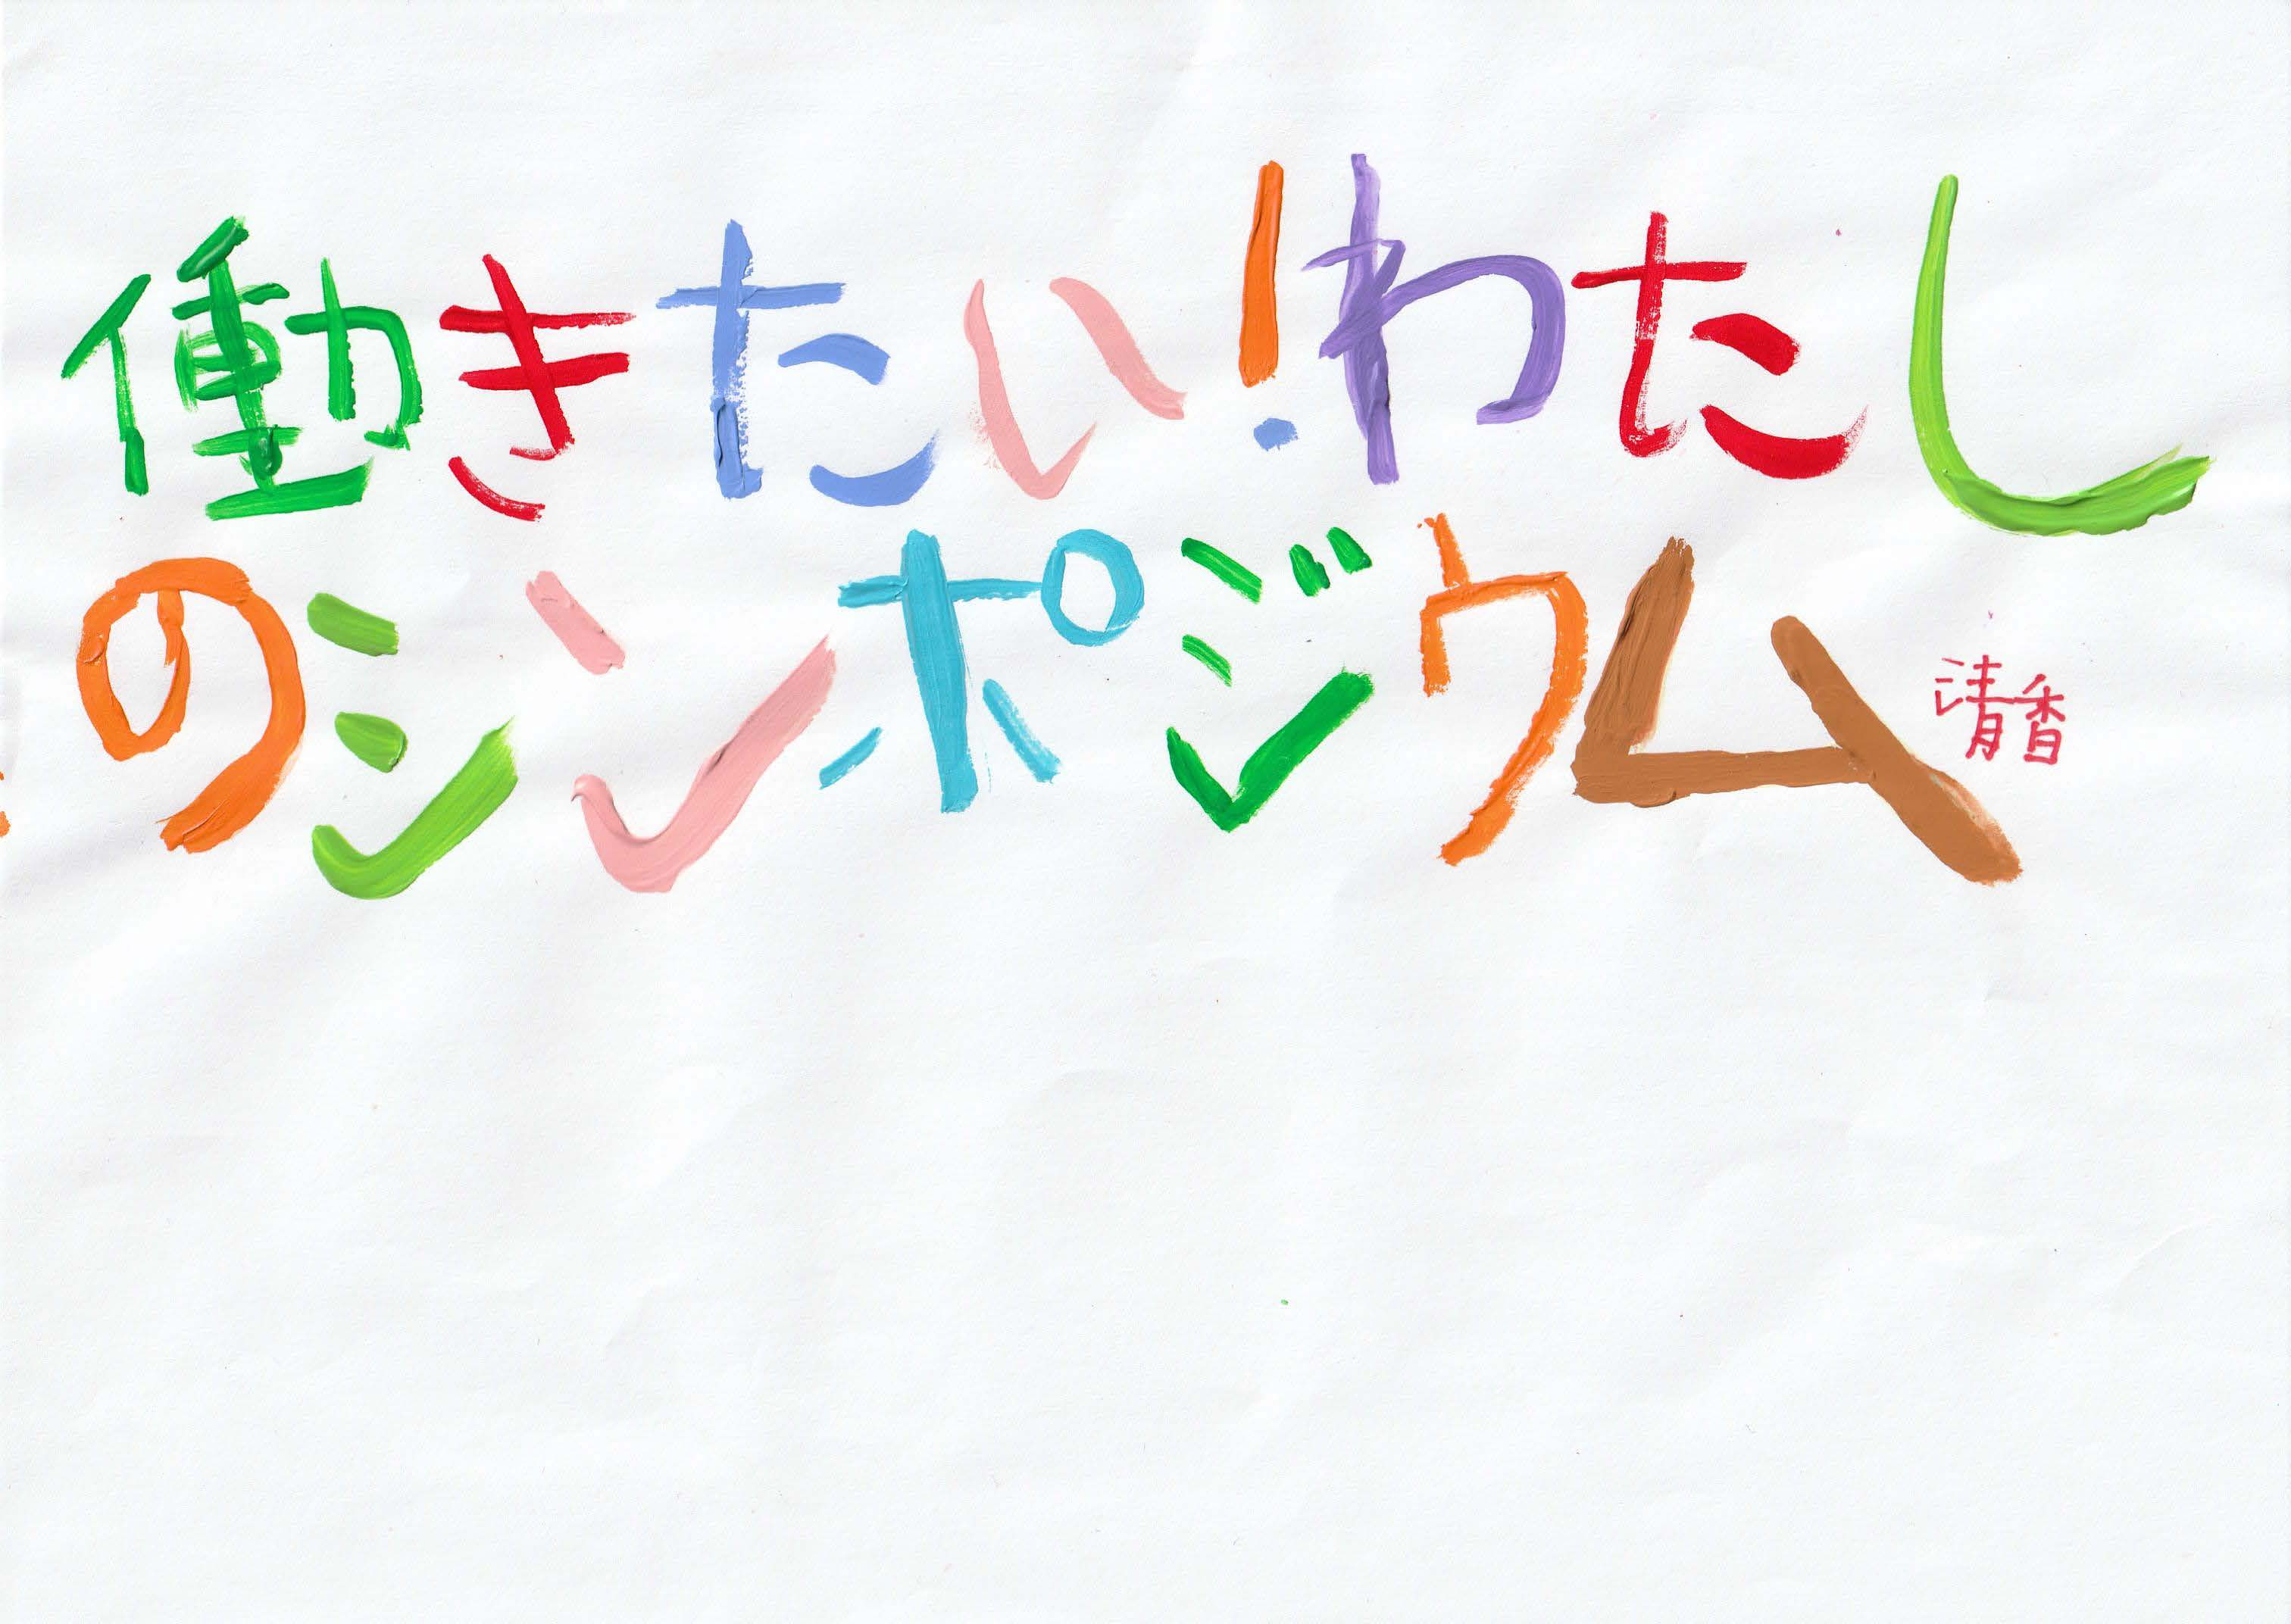 働きたい!わたし
のシンポジウム
清香